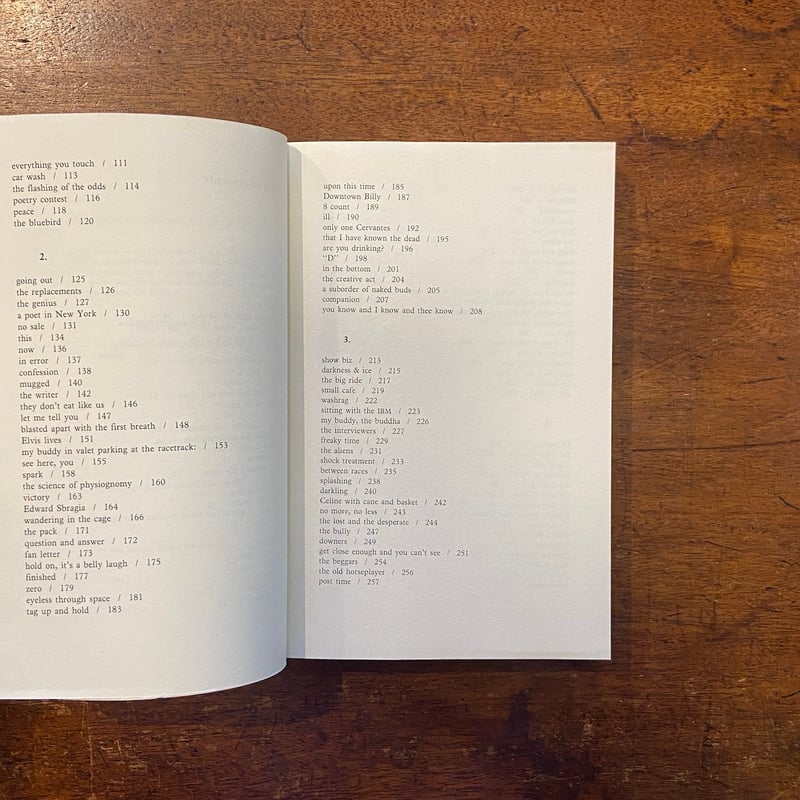 everything you touch / 111
car wash / 113
the flashing of the odds / 114
poetry contest / 116
peace / 118
the bluebird / 120
2.
going out / 125
the replacements / 126
the genius / 127
a poet in New York / 130
no sale / 131
this / 134
now / 136
in error / 137
confession / 138
mugged / 140
the writer / 142
they don't eat like us / 146
let me tell you / 147
blasted apart with the first breath / 148
Elvis lives / 151
my buddy in valet parking at the racetrack: / 153
see here, you / 155
spark / 158
the science of physiognomy / 160
victory / 163
Edward Sbragia / 164
wandering in the cage / 166
the pack / 171
question and answer / 172
fan letter / 173
hold on, it's a belly laugh / 175
finished / 177
zero / 179
eyeless through space / 181
tag up and hold / 183
upon this time / 185
Downtown Billy / 187
8 count / 189
ill / 190
only one Cervantes / 192
that I have known the dead / 195
are you drinking? / 196
"D" / 198
in the bottom / 201
the creative act / 204
a suborder of naked buds / 205
companion / 207
you know and I know and thee know / 208
3.
show biz / 213
darkness & ice / 215
the big ride / 217
small cafe / 219
washrag / 222
sitting with the IBM / 223
my buddy, the buddha / 226
the interviewers / 227
freaky time / 229
the aliens / 231
shock treatment / 233
between races / 235
splashing / 238
darkling / 240
Celine with cane and basket / 242
no more, no less / 243
the lost and the desperate / 244
the bully / 247
downers / 249
get close enough and you can't see / 251
the beggars / 254
the old horseplayer / 256
post time / 257